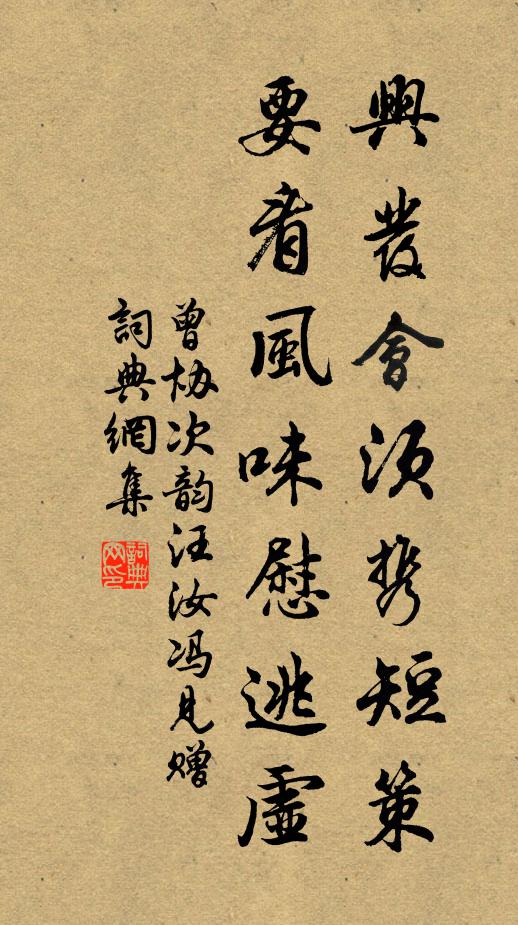 興發會須携短策
要看風味慰逃虛
曾协次韵汪汝冯見赠
詞典網集
詞典
网印